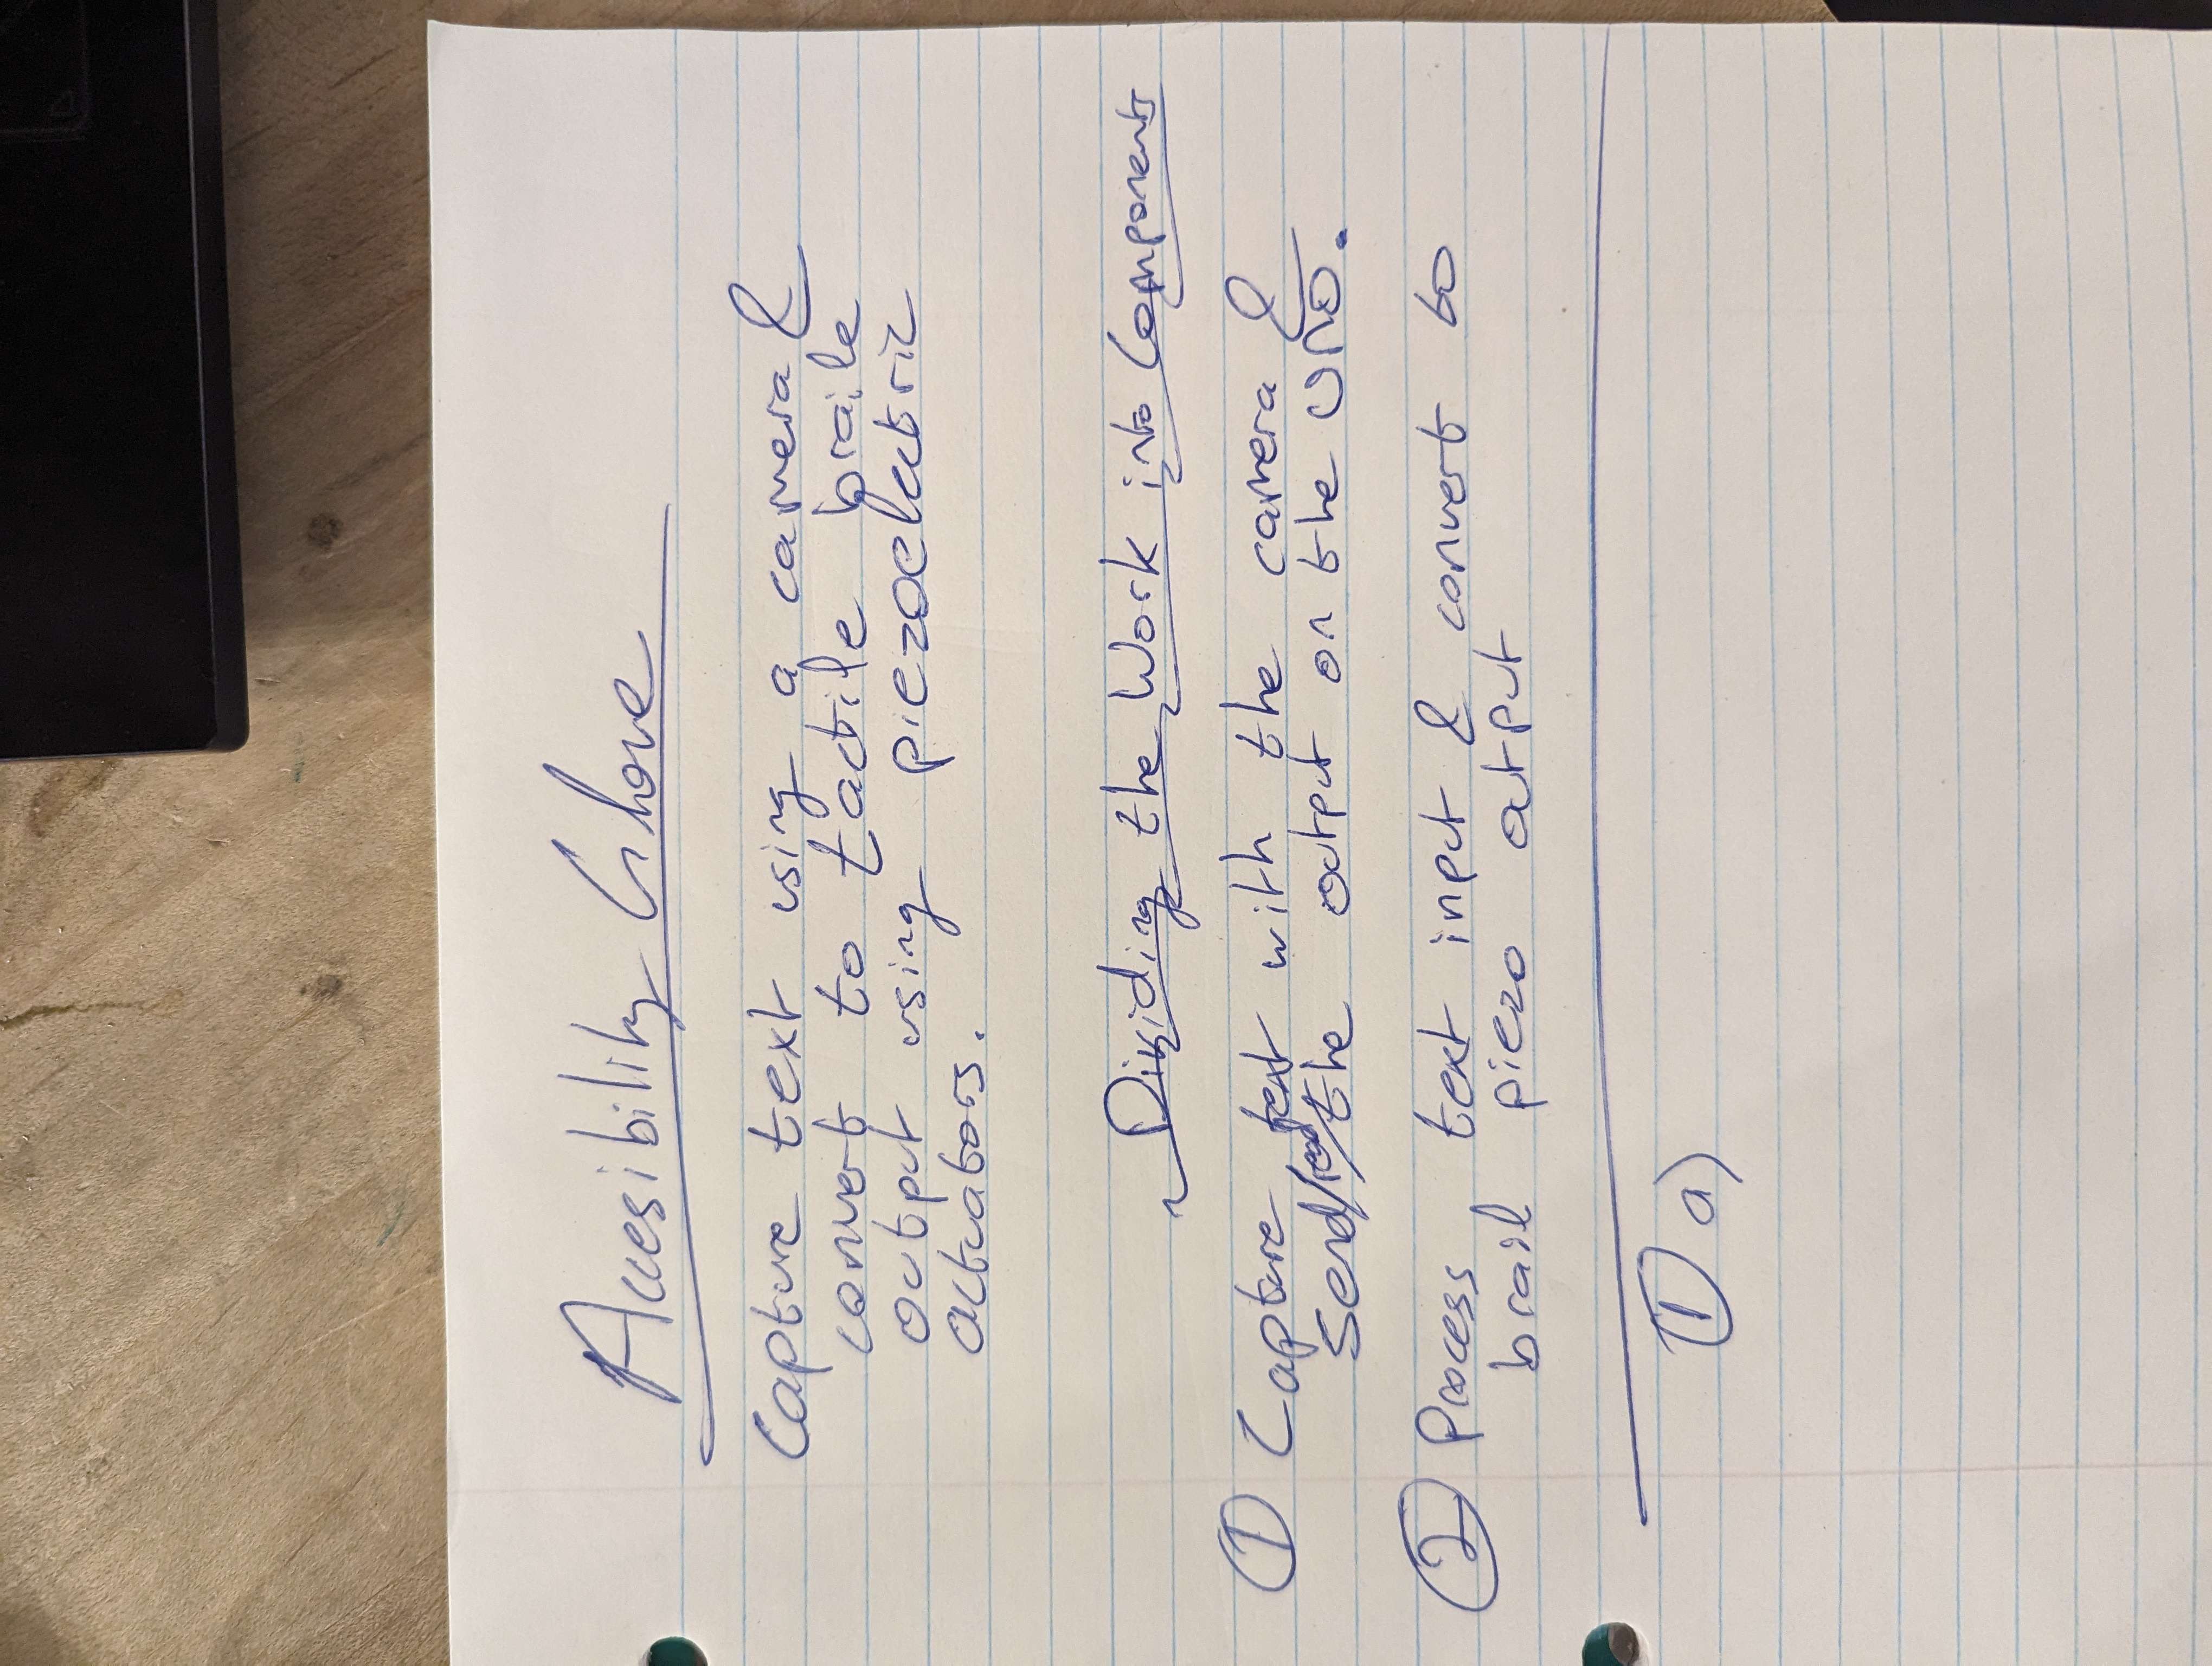 Accesibility Glove
Capture text using a camera &
convert to tactile braile
output using piezoelectric
actuators.
Dividing the Work into Components
① Capture text with the camera &
send/read/the output on the UNO.
② Process text input & convert to
brail piezo output
① a)